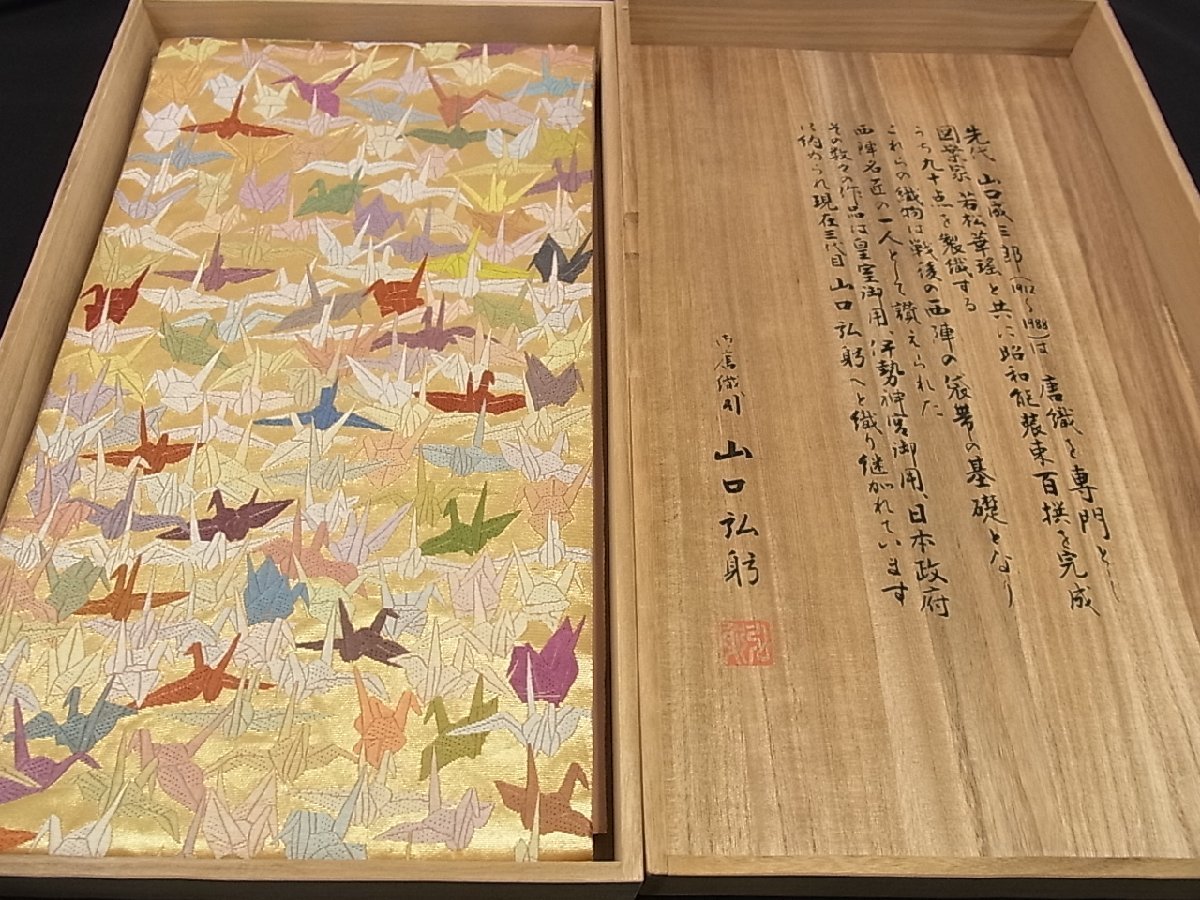 先代 山口成三郎(1912〜1988)は 唐織を専門とし
図案家 若松華瑶と共に昭和能装束百撰を完成
うち九十点を製織する
これらの織物は戦後の西陣の袋帯の基礎となり
西陣名匠の一人として讃えられた
その数々の作品は皇室御用、伊勢神宮御用、日本政府
に納められ現在三代目 山口弘躬へと織り継がれています
山口弘躬